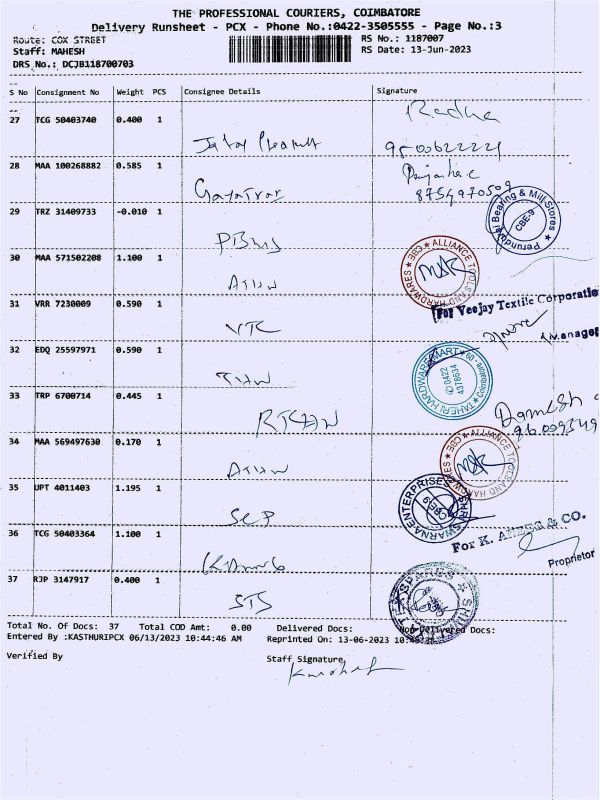 THE PROFESSIONAL COURIERS, COIMBATORE
Delivery Runsheet - PCX - Phone No.:0422-3505555 - Page No.:3
Route: COX STREET
RS No.: 1187007
Staff: MAHESH
RS Date: 13-Jun-2023
DRS No.: DCJB118700703
S No Consignment No Weight PCS Consignee Details Signature
27 TCG 50403740 0.400 1
Radha
9500622221
28 MAA 100268882 0.585 1
Gayatri
29 TRZ 31409733 -0.010 1
Perundevi Bearing & Mill Stores
CBE-9
30 MAA 571502208 1.100 1
ATHW
ALLIANCE TOOLS AND HARDWARES ★ CBE ★
31 VRR 7230009 0.590 1
VTC
For Veejay Textile Corporatio
Manager
32 EDQ 25597971 0.590 1
THW
TAHERI HARDWARE MART
0422
4378634
33 TRP 6700714 0.445 1
RTHW
34 MAA 569497630 0.170 1
ATHW
ALLIANCE TOOLS AND HARDWARES ★ CBE ★
35 UPT 4011403 1.195 1
SEP
SWARNA ENTERPRISES
36 TCG 50403364 1.100 1
For K. & CO.
Proprietor
37 RJP 3147917 0.400 1
STS
Total No. Of Docs: 37 Total COD Amt: 0.00 Delivered Docs: Non-Delivered Docs:
Entered By :KASTHURIPCX 06/13/2023 10:44:46 AM Reprinted On: 13-06-2023
Verified By
Staff Signature